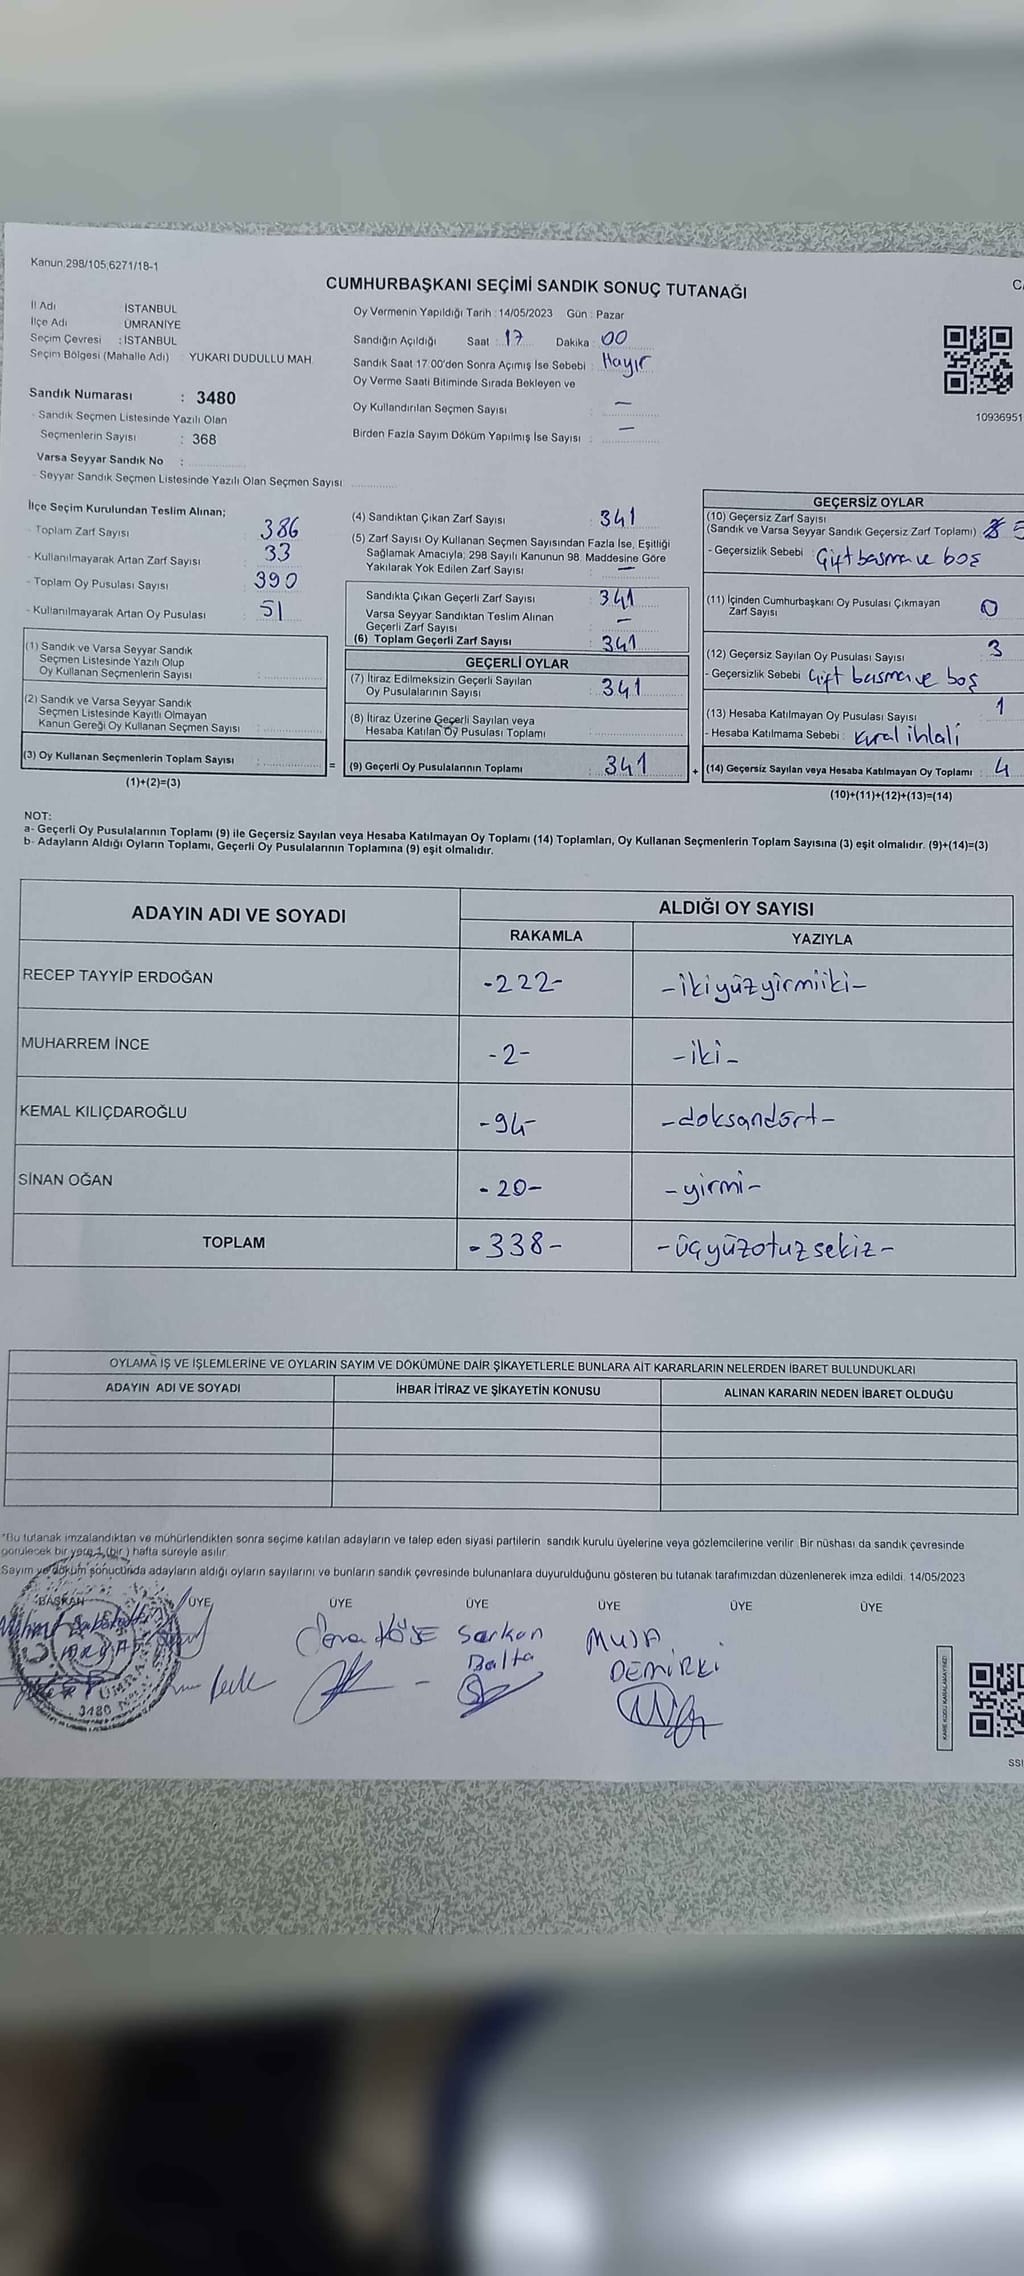 Kanun:298/105,6271/18-1
CUMHURBAŞKANI SEÇİMİ SANDIK SONUÇ TUTANAĞI
İl Adı İSTANBUL
İlçe Adı ÜMRANİYE
Seçim Çevresi : İSTANBUL
Seçim Bölgesi (Mahalle Adı) : YUKARI DUDULLU MAH.
Sandık Numarası : 3480
- Sandık Seçmen Listesinde Yazılı Olan
Seçmenlerin Sayısı : 368
Varsa Seyyar Sandık No :
- Seyyar Sandık Seçmen Listesinde Yazılı Olan Seçmen Sayısı
Oy Vermenin Yapıldığı Tarih : 14/05/2023 Gün : Pazar
Sandığın Açıldığı Saat : 17 Dakika : 00
Sandık Saat 17:00'den Sonra Açımış İse Sebebi : Hayır
Oy Verme Saati Bitiminde Sırada Bekleyen ve
Oy Kullandırılan Seçmen Sayısı : —
Birden Fazla Sayım Döküm Yapılmış İse Sayısı : —
10936951
İlçe Seçim Kurulundan Teslim Alınan;
- Toplam Zarf Sayısı : 386
- Kullanılmayarak Artan Zarf Sayısı : 33
- Toplam Oy Pusulası Sayısı : 390
- Kullanılmayarak Artan Oy Pusulası : 51
(1) Sandık ve Varsa Seyyar Sandık
Seçmen Listesinde Yazılı Olup
Oy Kullanan Seçmenlerin Sayısı :
(2) Sandık ve Varsa Seyyar Sandık
Seçmen Listesinde Kayıtlı Olmayan
Kanun Gereği Oy Kullanan Seçmen Sayısı :
(3) Oy Kullanan Seçmenlerin Toplam Sayısı :
(1)+(2)=(3)
=
(4) Sandıktan Çıkan Zarf Sayısı : 341
(5) Zarf Sayısı Oy Kullanan Seçmen Sayısından Fazla İse, Eşitliği
Sağlamak Amacıyla; 298 Sayılı Kanunun 98. Maddesine Göre
Yakılarak Yok Edilen Zarf Sayısı : —
Sandıkta Çıkan Geçerli Zarf Sayısı : 341
Varsa Seyyar Sandıktan Teslim Alınan
Geçerli Zarf Sayısı : —
(6) Toplam Geçerli Zarf Sayısı : 341
GEÇERLİ OYLAR
(7) İtiraz Edilmeksizin Geçerli Sayılan
Oy Pusulalarının Sayısı : 341
(8) İtiraz Üzerine Geçerli Sayılan veya
Hesaba Katılan Oy Pusulası Toplamı :
(9) Geçerli Oy Pusulalarının Toplamı : 341
+
GEÇERSİZ OYLAR
(10) Geçersiz Zarf Sayısı
(Sandık ve Varsa Seyyar Sandık Geçersiz Zarf Toplamı) 5
- Geçersizlik Sebebi : Çift basma ve boş
(11) İçinden Cumhurbaşkanı Oy Pusulası Çıkmayan
Zarf Sayısı 0
(12) Geçersiz Sayılan Oy Pusulası Sayısı : 3
- Geçersizlik Sebebi : Çift basma ve boş
(13) Hesaba Katılmayan Oy Pusulası Sayısı : 1
- Hesaba Katılmama Sebebi : Kural ihlali
(14) Geçersiz Sayılan veya Hesaba Katılmayan Oy Toplamı : 4
(10)+(11)+(12)+(13)=(14)
NOT:
a- Geçerli Oy Pusulalarının Toplamı (9) ile Geçersiz Sayılan veya Hesaba Katılmayan Oy Toplamı (14) Toplamları, Oy Kullanan Seçmenlerin Toplam Sayısına (3) eşit olmalıdır. (9)+(14)=(3)
b- Adayların Aldığı Oyların Toplamı, Geçerli Oy Pusulalarının Toplamına (9) eşit olmalıdır.
ADAYIN ADI VE SOYADI ALDIĞI OY SAYISI
RAKAMLA YAZIYLA
RECEP TAYYİP ERDOĞAN -222- -ikiyüzyirmiiki-
MUHARREM İNCE -2- -iki-
KEMAL KILIÇDAROĞLU -94- -doksandört-
SİNAN OĞAN -20- -yirmi-
TOPLAM -338- -üçyüzotuzsekiz-
OYLAMA İŞ VE İŞLEMLERİNE VE OYLARIN SAYIM VE DÖKÜMÜNE DAİR ŞİKAYETLERLE BUNLARA AİT KARARLARIN NELERDEN İBARET BULUNDUKLARI
ADAYIN ADI VE SOYADI İHBAR İTİRAZ VE ŞİKAYETİN KONUSU ALINAN KARARIN NEDEN İBARET OLDUĞU
*Bu tutanak imzalandıktan ve mühürlendikten sonra seçime katılan adayların ve talep eden siyasi partilerin sandık kurulu üyelerine veya gözlemcilerine verilir. Bir nüshası da sandık çevresinde
görülecek bir yere 1 (bir) hafta süreyle asılır.
Sayım ve döküm sonucunda adayların aldığı oyların sayılarını ve bunların sandık çevresinde bulunanlara duyurulduğunu gösteren bu tutanak tarafımızdan düzenlenerek imza edildi. 14/05/2023
BAŞKAN ÜYE ÜYE ÜYE ÜYE ÜYE ÜYE
KÖSE Serkan Balta
MUSA DEMİRKİ
ÜMRA
3480
KARE KODU KARALAMAYINIZ!
SSI